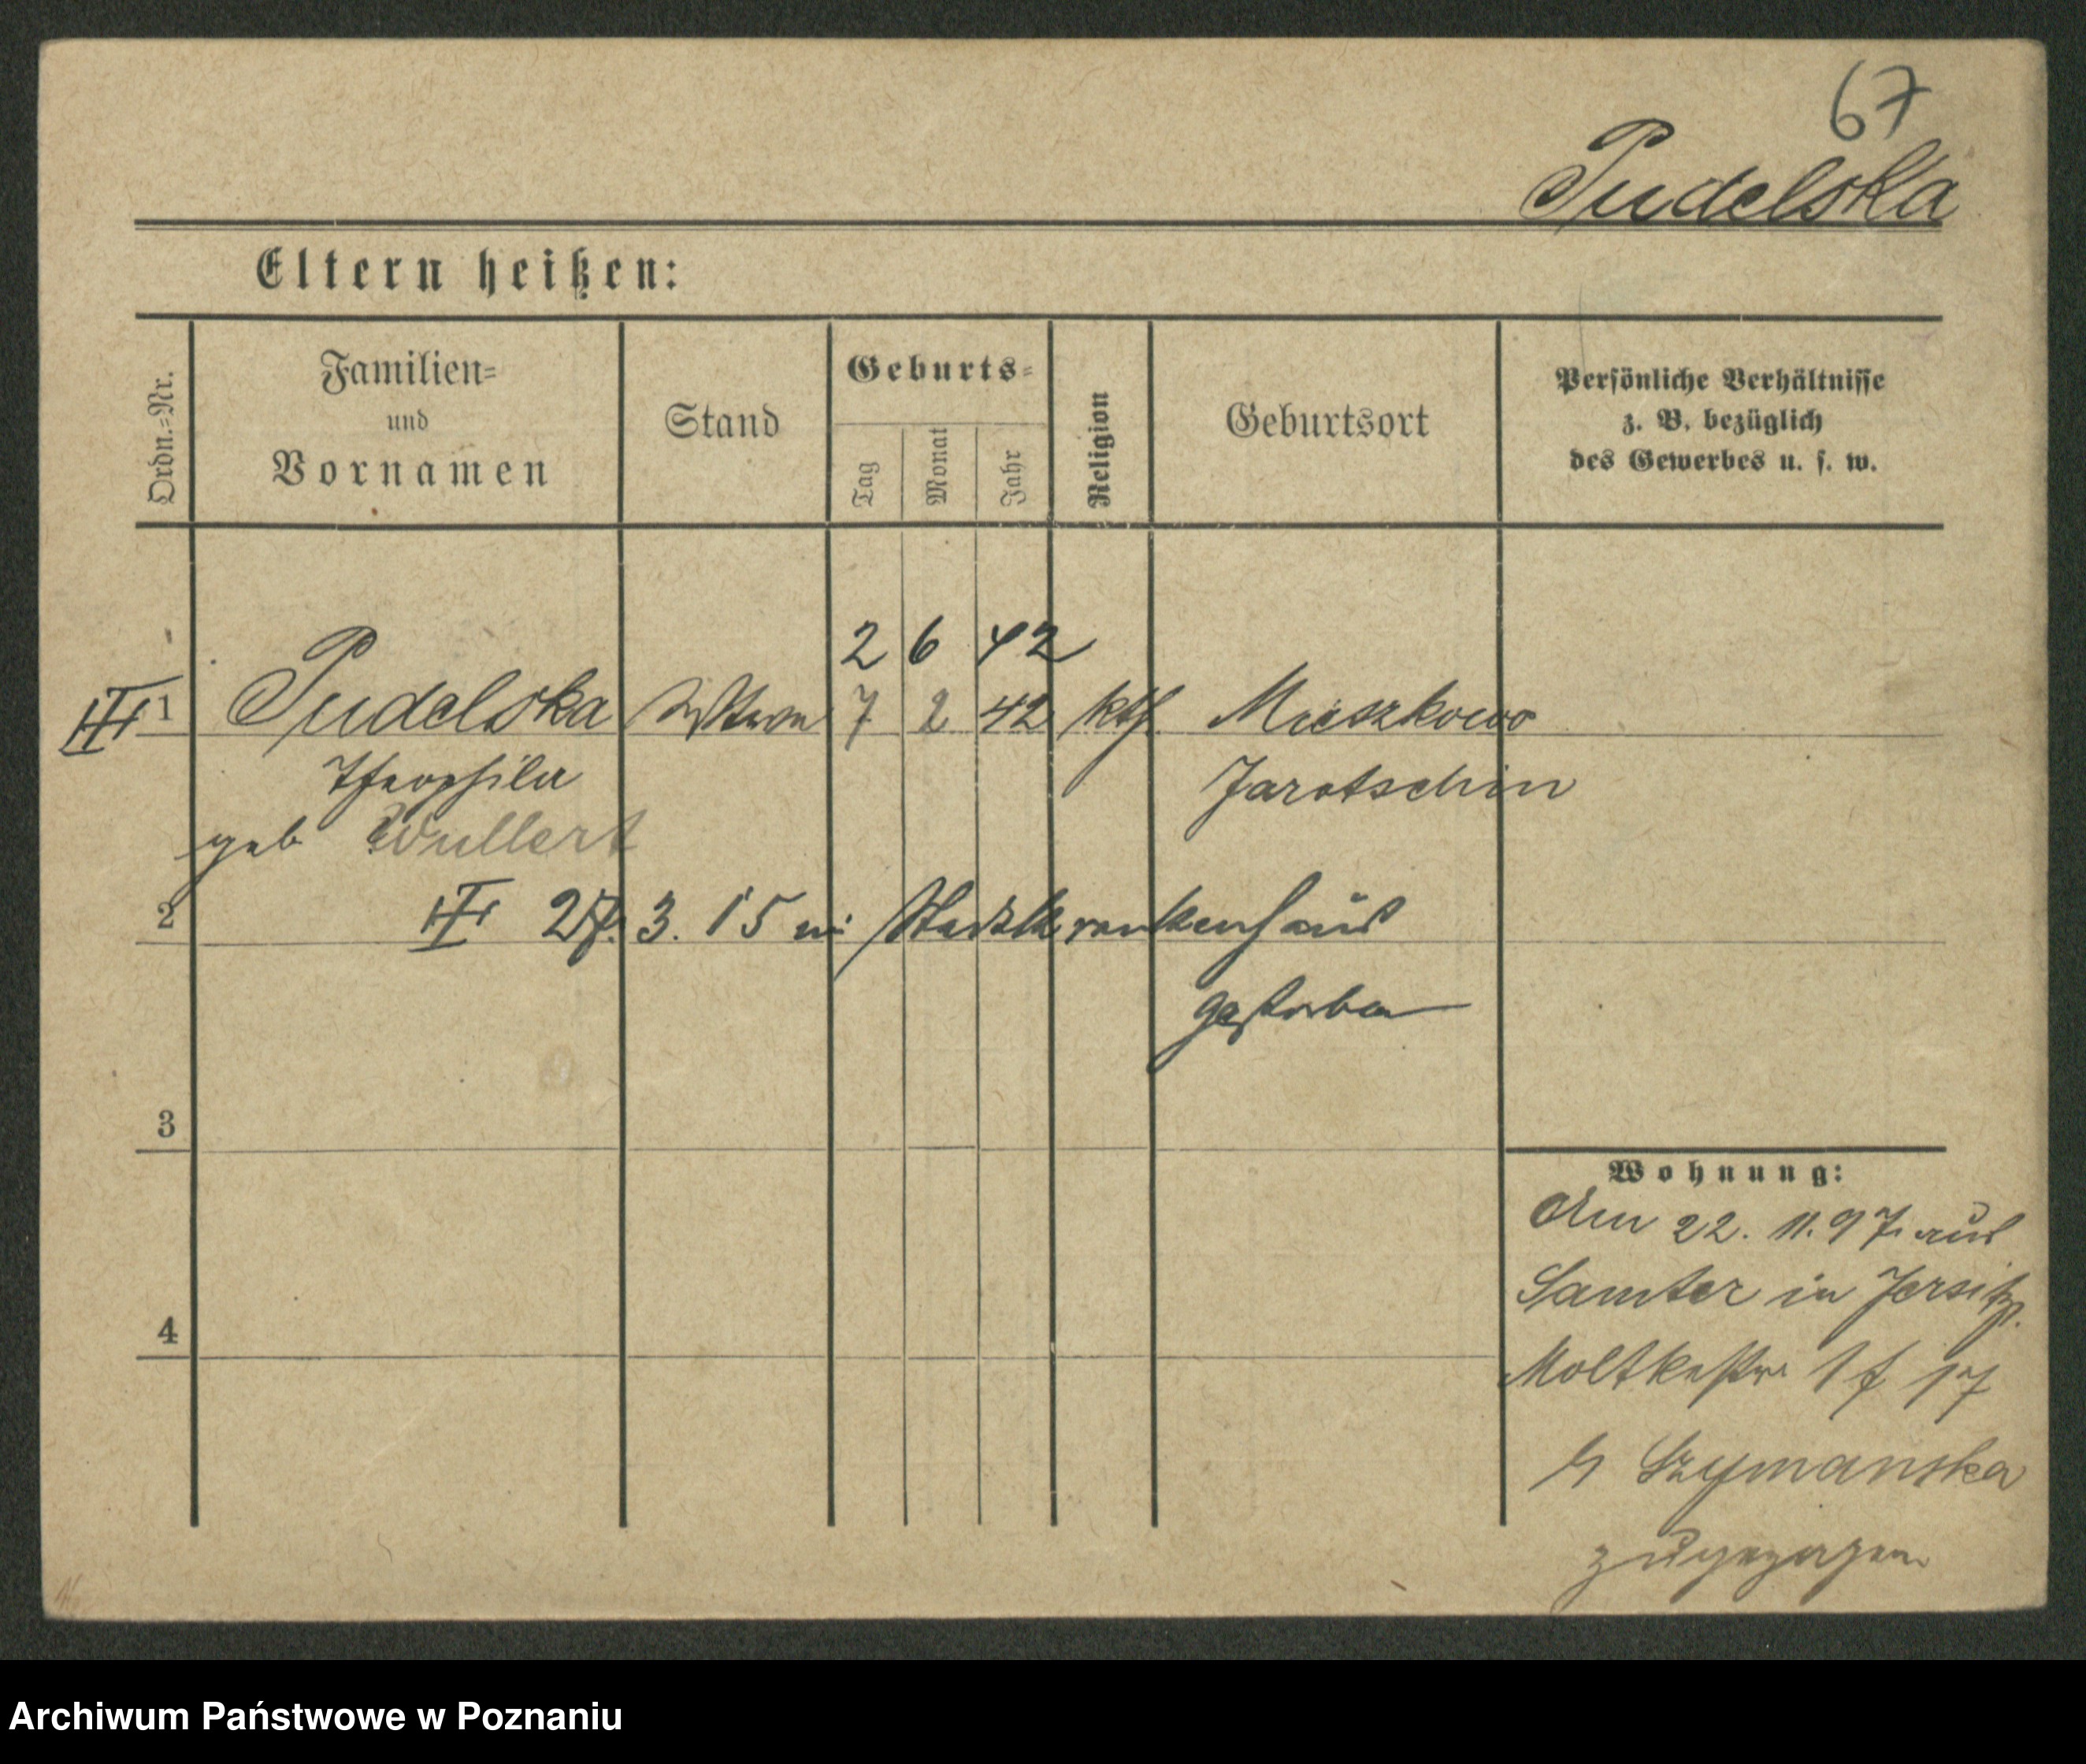 67
Pudelska
Eltern heißen:
Ordn.=Nr.
Familien=
und
Vornamen
Stand
Geburts=
Tag
Monat
Jahr
Religion
Geburtsort
Persönliche Verhältnisse
z. B. bezüglich
des Gewerbes u. s. w.
2 6 42
1 Pudelska Wittwe 7 2 42 kth. Mieszkowo
Theophila Jarotschin
geb Wullert
2
27. 3. 15 im Stadtkrankenhaus
gestorben
3
4
Wohnung:
Am 22. 11. 97 aus
Samter in Jersitz
Moltkestr. 17
Szymanska
zugezogen
Archiwum Państwowe w Poznaniu